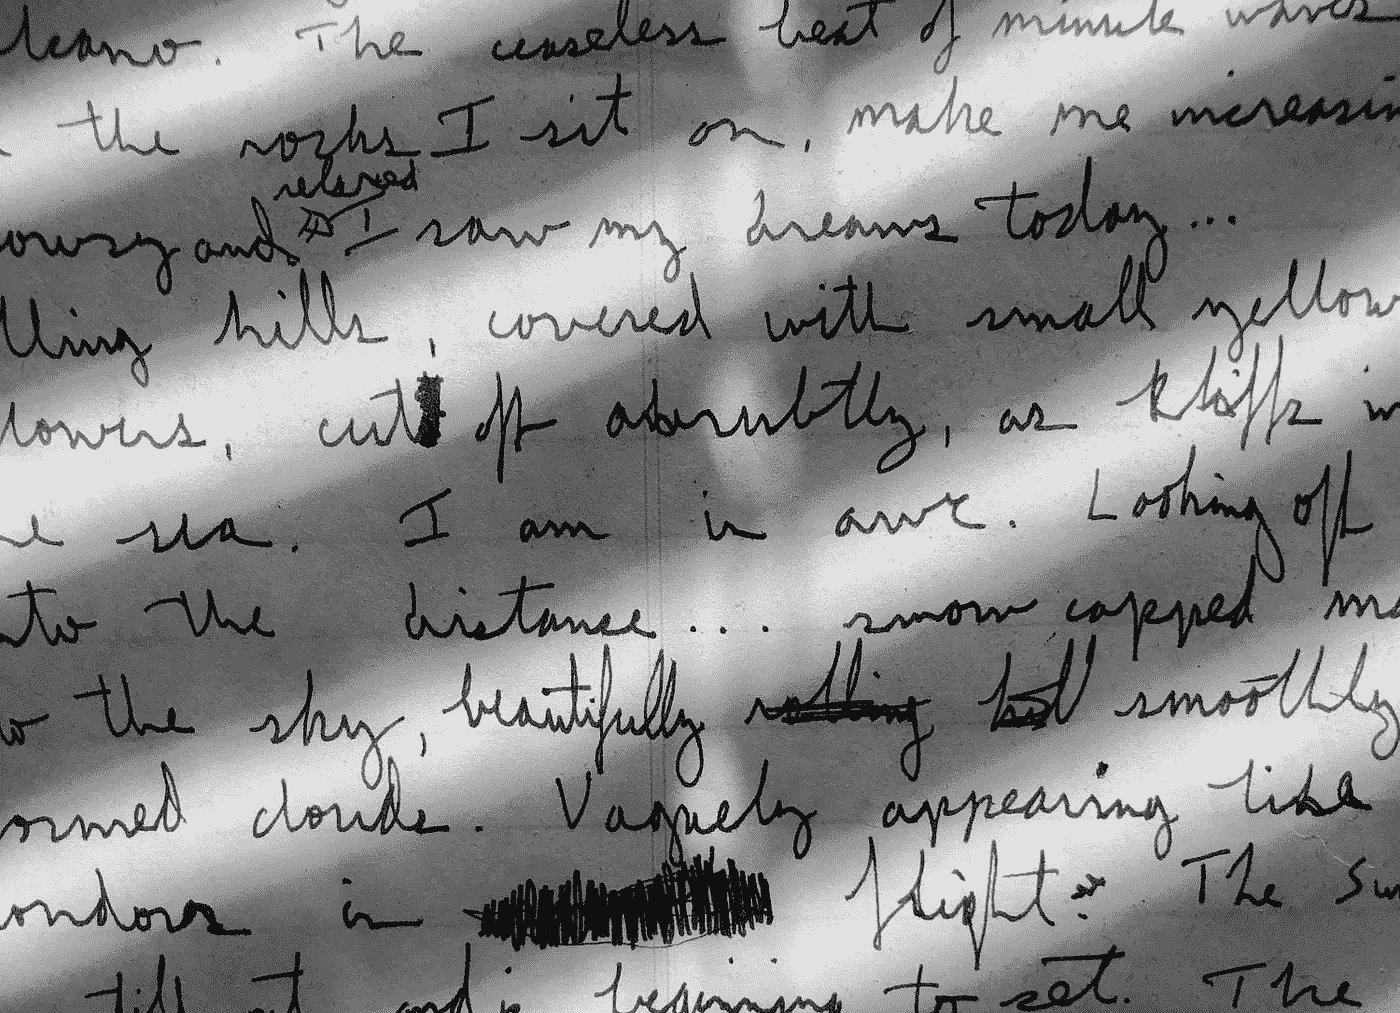 lcano. The ceaseless beat of minute waves
the rocks I sit on, make me increasin
relaxed
owsy and I saw my dreams today...
lling hills, covered with small yellow
lowers, cut off abrubtly, as kliffs in
e sea. I am in awe. Looking off
nto the distance... snow capped mo
o the sky, beautifully rolling but smoothly
ormed clouds. Vaguely appearing like
ondors in flight. The su
still out and is beginning to set. The